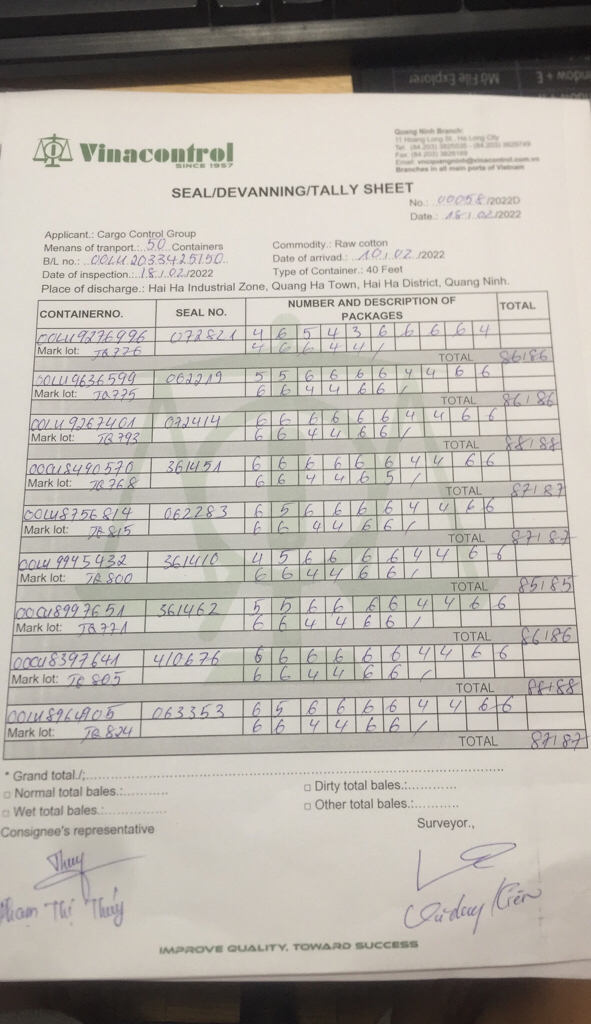 Vinacontrol
SINCE 1957
Quang Ninh Branch:
11 Hoang Long St., Ha Long City
Branches in all main ports of Vietnam
SEAL/DEVANNING/TALLY SHEET
No.: 00058/2022D
Date.: 18/02/2022
Applicant.: Cargo Control Group
Menans of tranport.: 50 Containers
B/L no.: OOLU2033425150
Date of inspection.: 18/02/2022
Commodity.: Raw cotton
Date of arrivad.: 10/02/2022
Type of Container.: 40 Feet
Place of discharge.: Hai Ha Industrial Zone, Quang Ha Town, Hai Ha District, Quang Ninh.
CONTAINERNO. SEAL NO. NUMBER AND DESCRIPTION OF PACKAGES TOTAL
OOLU9276996 072821 4 6 5 4 3 6 6 6 6 4
Mark lot: TQ776 4 6 6 4 4 /
TOTAL 86/86
OOLU9636599 062219 5 5 6 6 6 6 4 4 6 6
Mark lot: TQ775 6 6 4 4 6 6 /
TOTAL 86/86
OOLU9267401 072414 6 6 6 6 6 6 4 4 6 6
Mark lot: TQ793 6 6 4 4 6 6 /
TOTAL 88/88
OOCU8490570 361451 6 6 6 6 6 6 4 4 6 6
Mark lot: TQ768 6 6 4 4 6 5 /
TOTAL 87/87
OOLU8756814 062283 6 5 6 6 6 6 4 4 6 6
Mark lot: TQ815 6 6 4 4 6 6 /
TOTAL 87/87
OOLU9945432 361410 4 5 6 6 6 6 4 4 6 6
Mark lot: TQ800 6 6 4 4 6 6 /
TOTAL 85/85
OOCU8997651 361462 5 5 6 6 6 6 4 4 6 6
Mark lot: TQ771 6 6 4 4 6 6 /
TOTAL 86/86
OOCU8397641 410676 6 6 6 6 6 6 4 4 6 6
Mark lot: TQ805 6 6 4 4 6 6 /
TOTAL 88/88
OOLU8964905 063353 6 5 6 6 6 6 4 4 6 6
Mark lot: TQ824 6 6 4 4 6 6 /
TOTAL 87/87
* Grand total./;
□ Normal total bales.:
□ Dirty total bales.:
□ Wet total bales.:
□ Other total bales.:
Consignee's representative
Surveyor.,
Thuy
Phạm Thị Thúy
IMPROVE QUALITY, TOWARD SUCCESS